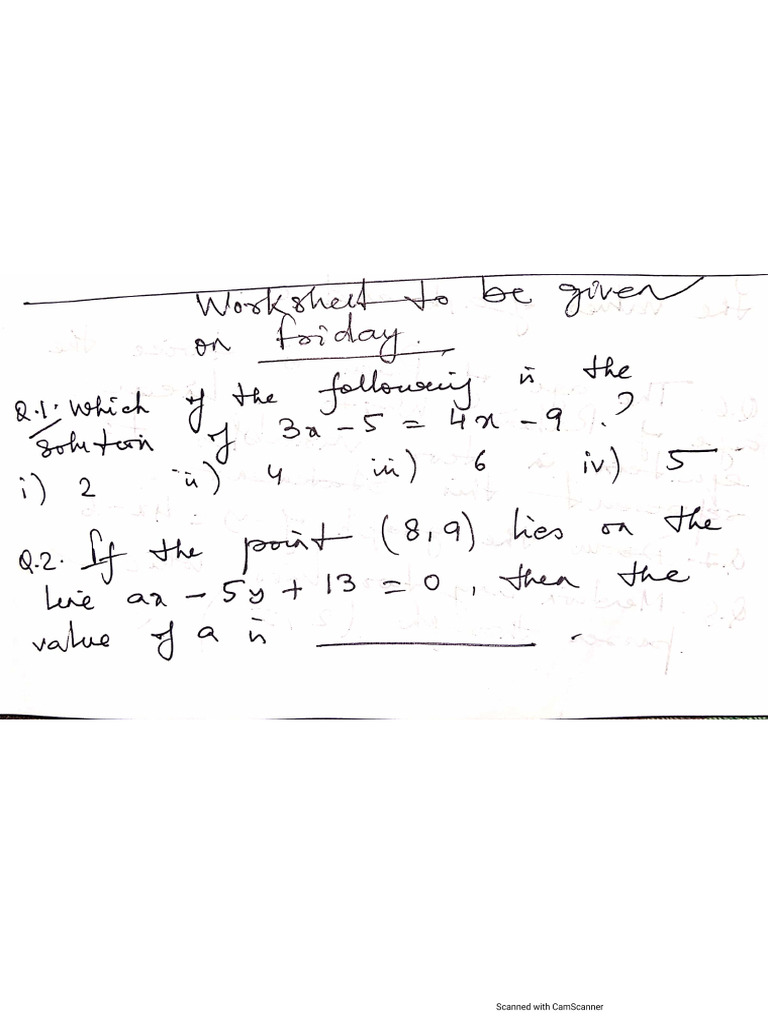 Worksheet to be given
on friday.
Q.1. Which of the following is the
solution of 3x - 5 = 4x - 9 ?
i) 2 ii) 4 iii) 6 iv) 5
Q.2. If the point (8,9) lies on the
line ax - 5y + 13 = 0, then the
value of a is __________ .
Scanned with CamScanner